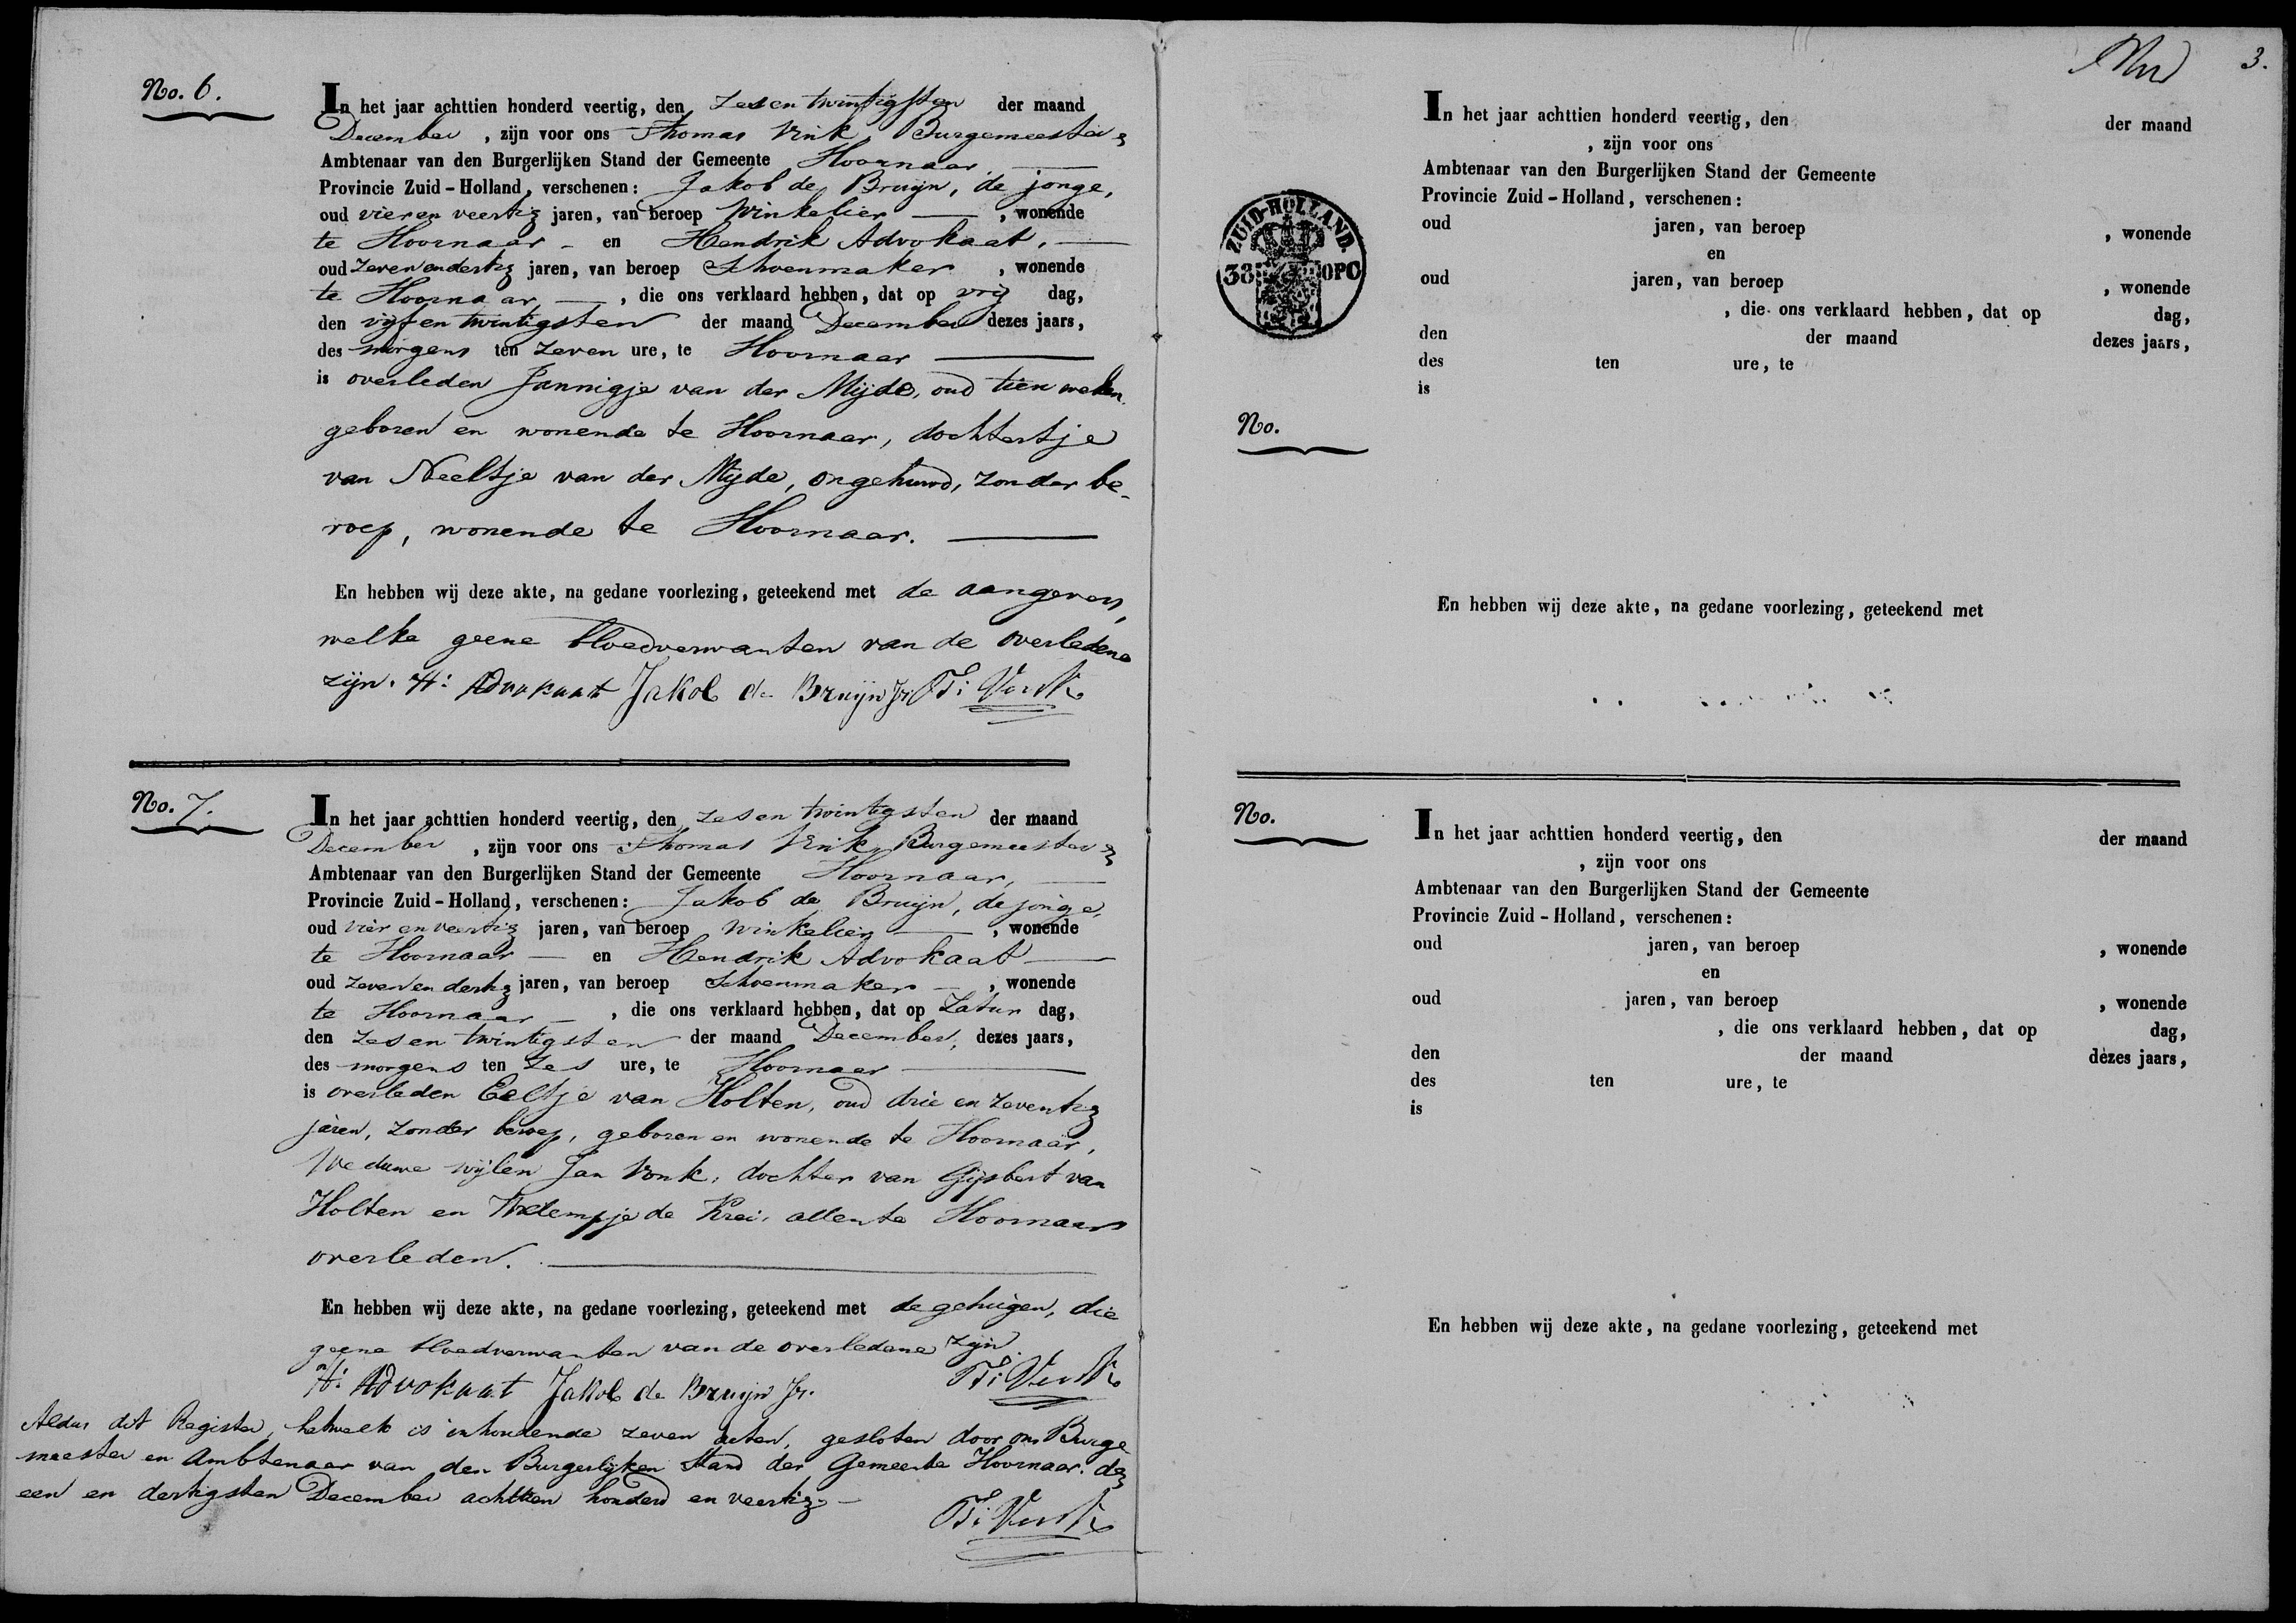 No. 6.
In het jaar achttien honderd veertig, den zes en twintigsten der maand
December, zijn voor ons Thomas Vink, Burgemeester
Ambtenaar van den Burgerlijken Stand der Gemeente Hoornaar
Provincie Zuid-Holland, verschenen: Jakob de Bruijn, de jonge,
oud vier en veertig jaren, van beroep Winkelier, wonende
te Hoornaar - en Hendrik Advokaat,
oud zeven en dertig jaren, van beroep Schoenmaker, wonende
te Hoornaar, die ons verklaard hebben, dat op vrij dag,
den vijf en twintigsten der maand December dezes jaars,
des morgens ten zeven ure, te Hoornaar
is overleden Jannigje van der Mijde, oud tien weken
geboren en wonende te Hoornaar, dochtertje
van Neeltje van der Mijde, ongehuwd, zonder be-
roep, wonende te Hoornaar.
En hebben wij deze akte, na gedane voorlezing, geteekend met de aangevers,
welke geene bloedverwanten van de overledene
zijn. H: Advokaat Jakob de Bruijn Jr. T: Vink
No. 7.
In het jaar achttien honderd veertig, den zes en twintigsten der maand
December, zijn voor ons Thomas Vink, Burgemeester
Ambtenaar van den Burgerlijken Stand der Gemeente Hoornaar,
Provincie Zuid-Holland, verschenen: Jakob de Bruijn, de jonge,
oud vier en veertig jaren, van beroep Winkelier, wonende
te Hoornaar - en Hendrik Advokaat
oud zeven en dertig jaren, van beroep Schoenmaker -, wonende
te Hoornaar -, die ons verklaard hebben, dat op Zatur dag,
den zes en twintigsten der maand December, dezes jaars,
des morgens ten zes ure, te Hoornaar
is overleden Eeltje van Holten, oud drie en zeventig
jaren, zonder beroep, geboren en wonende te Hoornaar,
Weduwe wijlen Jan Vonk, dochter van Gijsbert van
Holten en de Krei, allen te Hoornaar
overleden.
En hebben wij deze akte, na gedane voorlezing, geteekend met de getuigen, die
geene bloedverwanten van de overledene zijn.
H: Advokaat Jakob de Bruijn Jr. T: Vink
Aldus dit Register, hetwelk is inhoudende zeven acten, gesloten door ons Burge
meester en Ambtenaar van den Burgerlijken Stand der Gemeente Hoornaar. den
een en dertigsten December achttien honderd en veertig -
T: Vink
3.
In het jaar achttien honderd veertig, den der maand
, zijn voor ons
Ambtenaar van den Burgerlijken Stand der Gemeente
Provincie Zuid-Holland, verschenen:
oud jaren, van beroep , wonende
en
oud jaren, van beroep , wonende
, die ons verklaard hebben, dat op dag,
den der maand dezes jaars,
des ten ure, te
is
ZUID-HOLLAND.
38 OPC
No.
En hebben wij deze akte, na gedane voorlezing, geteekend met
No.
In het jaar achttien honderd veertig, den der maand
, zijn voor ons
Ambtenaar van den Burgerlijken Stand der Gemeente
Provincie Zuid-Holland, verschenen:
oud jaren, van beroep , wonende
en
oud jaren, van beroep , wonende
, die ons verklaard hebben, dat op dag,
den der maand dezes jaars,
des ten ure, te
is
En hebben wij deze akte, na gedane voorlezing, geteekend met